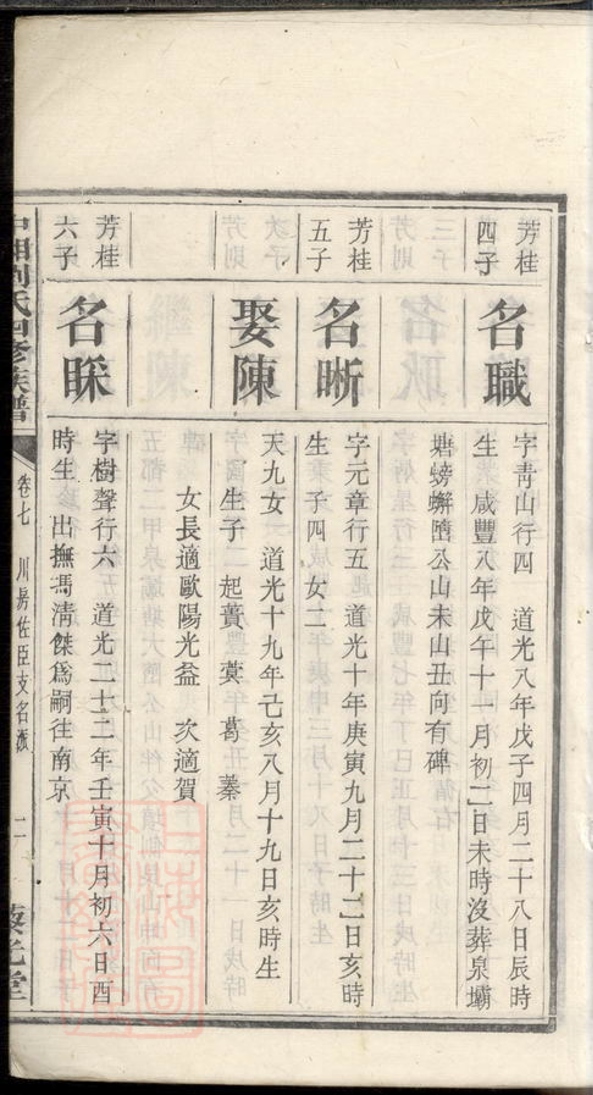 芳桂
四子
名職
字靑山行四 道光八年戊子四月二十八日辰時
生 咸豐八年戊午十一月初二日未時沒葬泉壩
塘螃蠏墮公山未山丑向有碑
芳桂
五子
名晣
字元章行五 道光十年庚寅九月二十二日亥時
生 子四 女二
娶陳
天九女 道光十九年己亥八月十九日亥時生
生子 起蕢 蓂 葛 蓁
女長適歐陽光益 次適賀
芳桂
六子
名睬
字樹聲行六 道光二十二年壬寅十月初六日酉
時生 出撫馮淸傑爲嗣往南京
中湘劉氏四修族譜
卷七 川房佐臣支名派
二